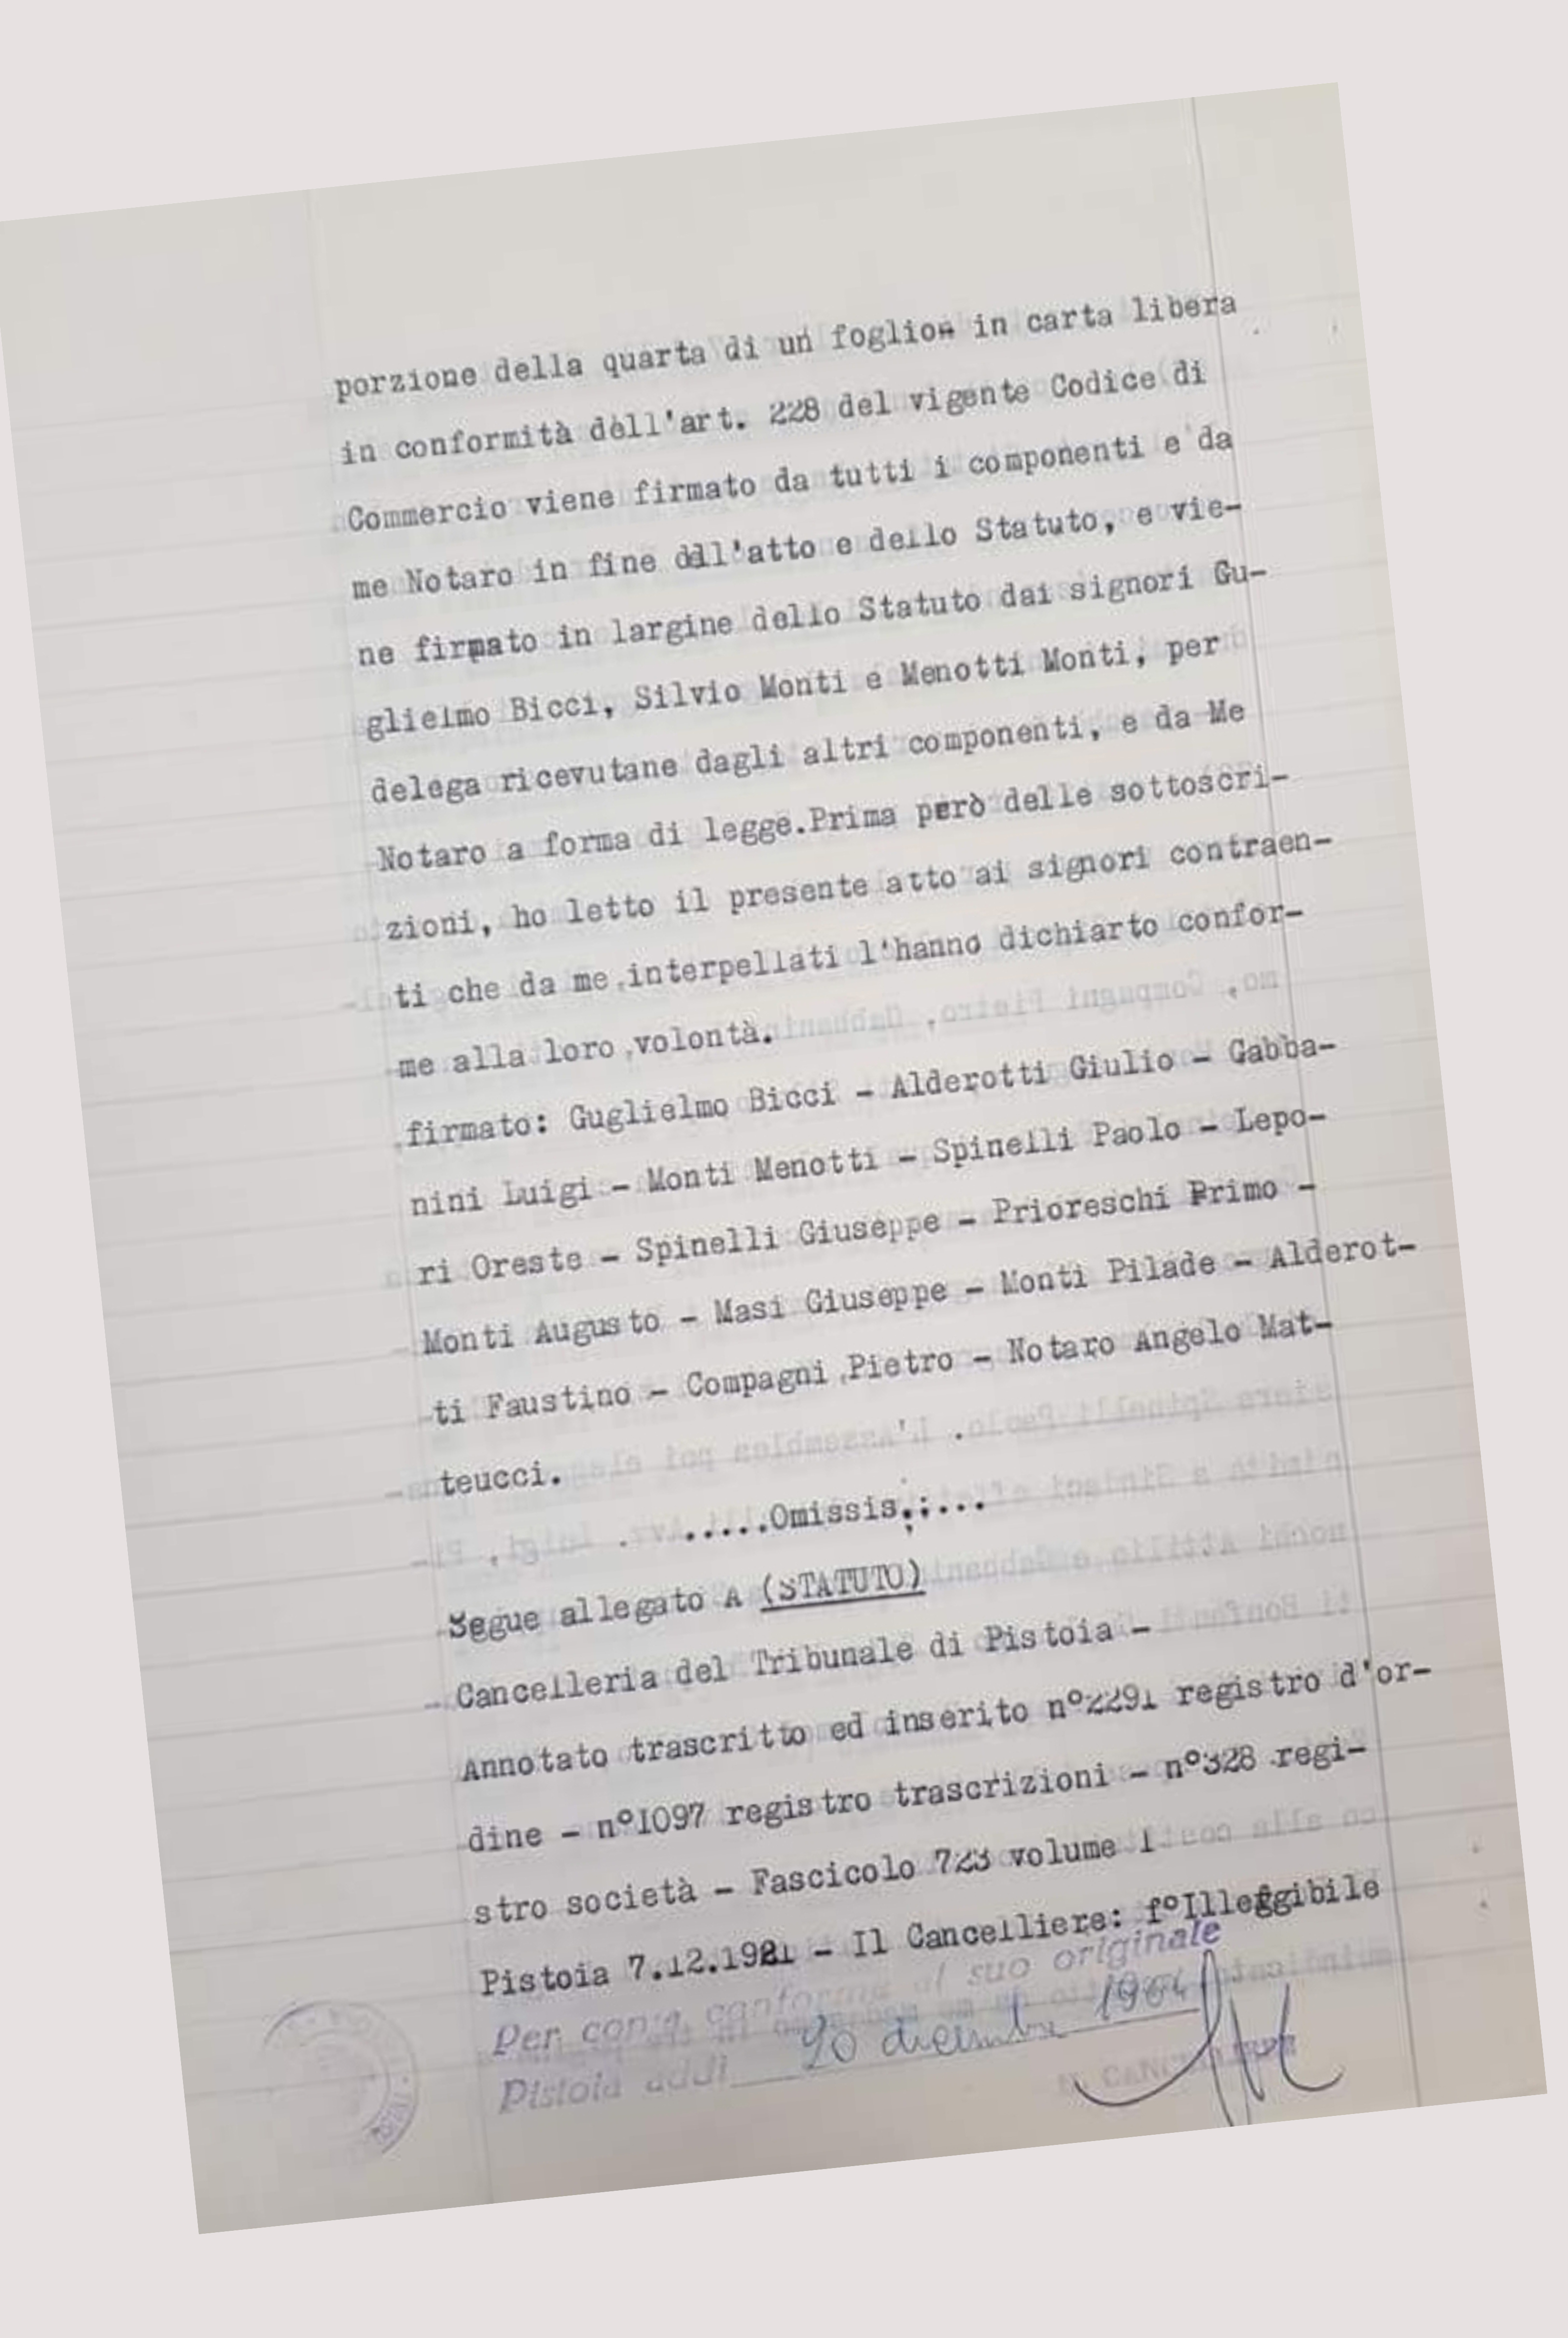 porzione della quarta di un foglio in carta libera
in conformità dell'art. 228 del vigente Codice di
Commercio viene firmato da tutti i componenti e da
me Notaro in fine dell'atto e dello Statuto, e vie-
ne firmato in largine dello Statuto dai signori Gu-
glielmo Bicci, Silvio Monti e Menotti Monti, per
delega ricevutane dagli altri componenti, e da Me
Notaro a forma di legge.Prima però delle sottoscri-
zioni, ho letto il presente atto ai signori contraen-
ti che da me interpellati l'hanno dichiarto confor-
me alla loro volontà.
firmato: Guglielmo Bicci - Alderotti Giulio - Gabba-
nini Luigi - Monti Menotti - Spinelli Paolo - Lepo-
ri Oreste - Spinelli Giuseppe - Prioreschi Primo -
Monti Augusto - Masi Giuseppe - Monti Pilade - Alderot-
ti Faustino - Compagni Pietro - Notaro Angelo Mat-
teucci.
.....Omissis.:...
Segue allegato A (STATUTO)
Cancelleria del Tribunale di Pistoia -
Annotato trascritto ed inserito n°2291 registro d'or-
dine - n°1097 registro trascrizioni - n°328 regi-
stro società - Fascicolo 723 volume 1
Pistoia 7.12.1921 - Il Cancelliere: f°Illeggibile
Per copia conforme al suo originale
Pistoia addì 20 dicembre 1964
IL CANCELLIERE